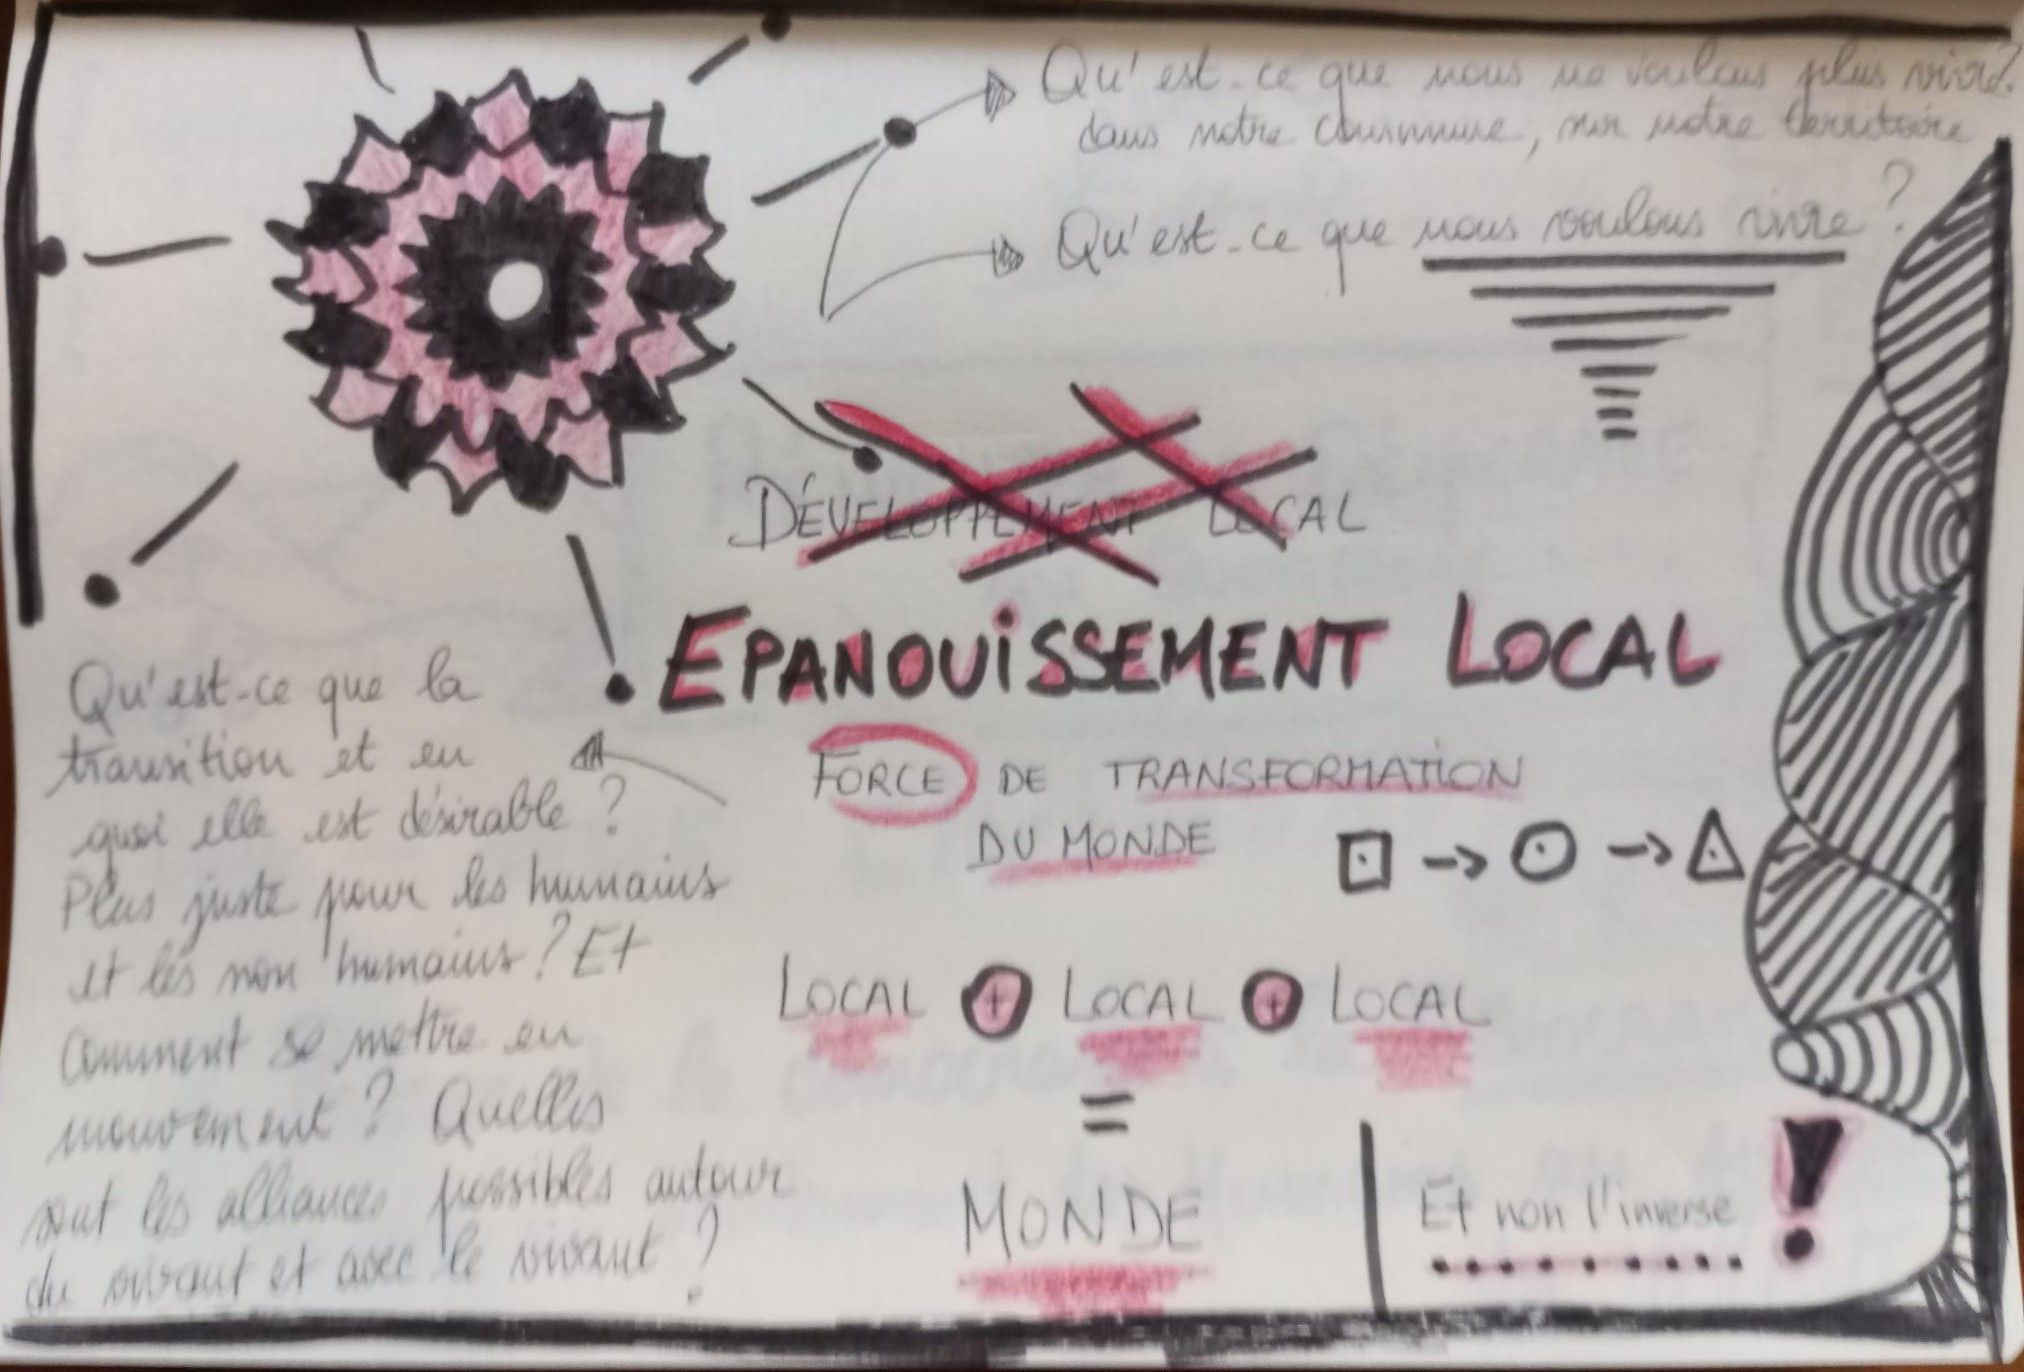 Qu'est-ce que nous ne voulons plus vivre?
dans notre commune, sur notre territoire
Qu'est-ce que nous voulons vivre ?
DÉVELOPPEMENT LOCAL
EPANOUiSSEMENT LOCAL
FORCE DE TRANSFORMATiON
DU MONDE
LOCAL + LOCAL + LOCAL
=
MONDE
Et non l'inverse !
Qu'est-ce que la
transition et en
quoi elle est désirable ?
Plus juste pour les humains
et les non humains ? Et
Comment se mettre en
mouvement ? Quelles
sont les alliances possibles autour
du vivant et avec le vivant ?